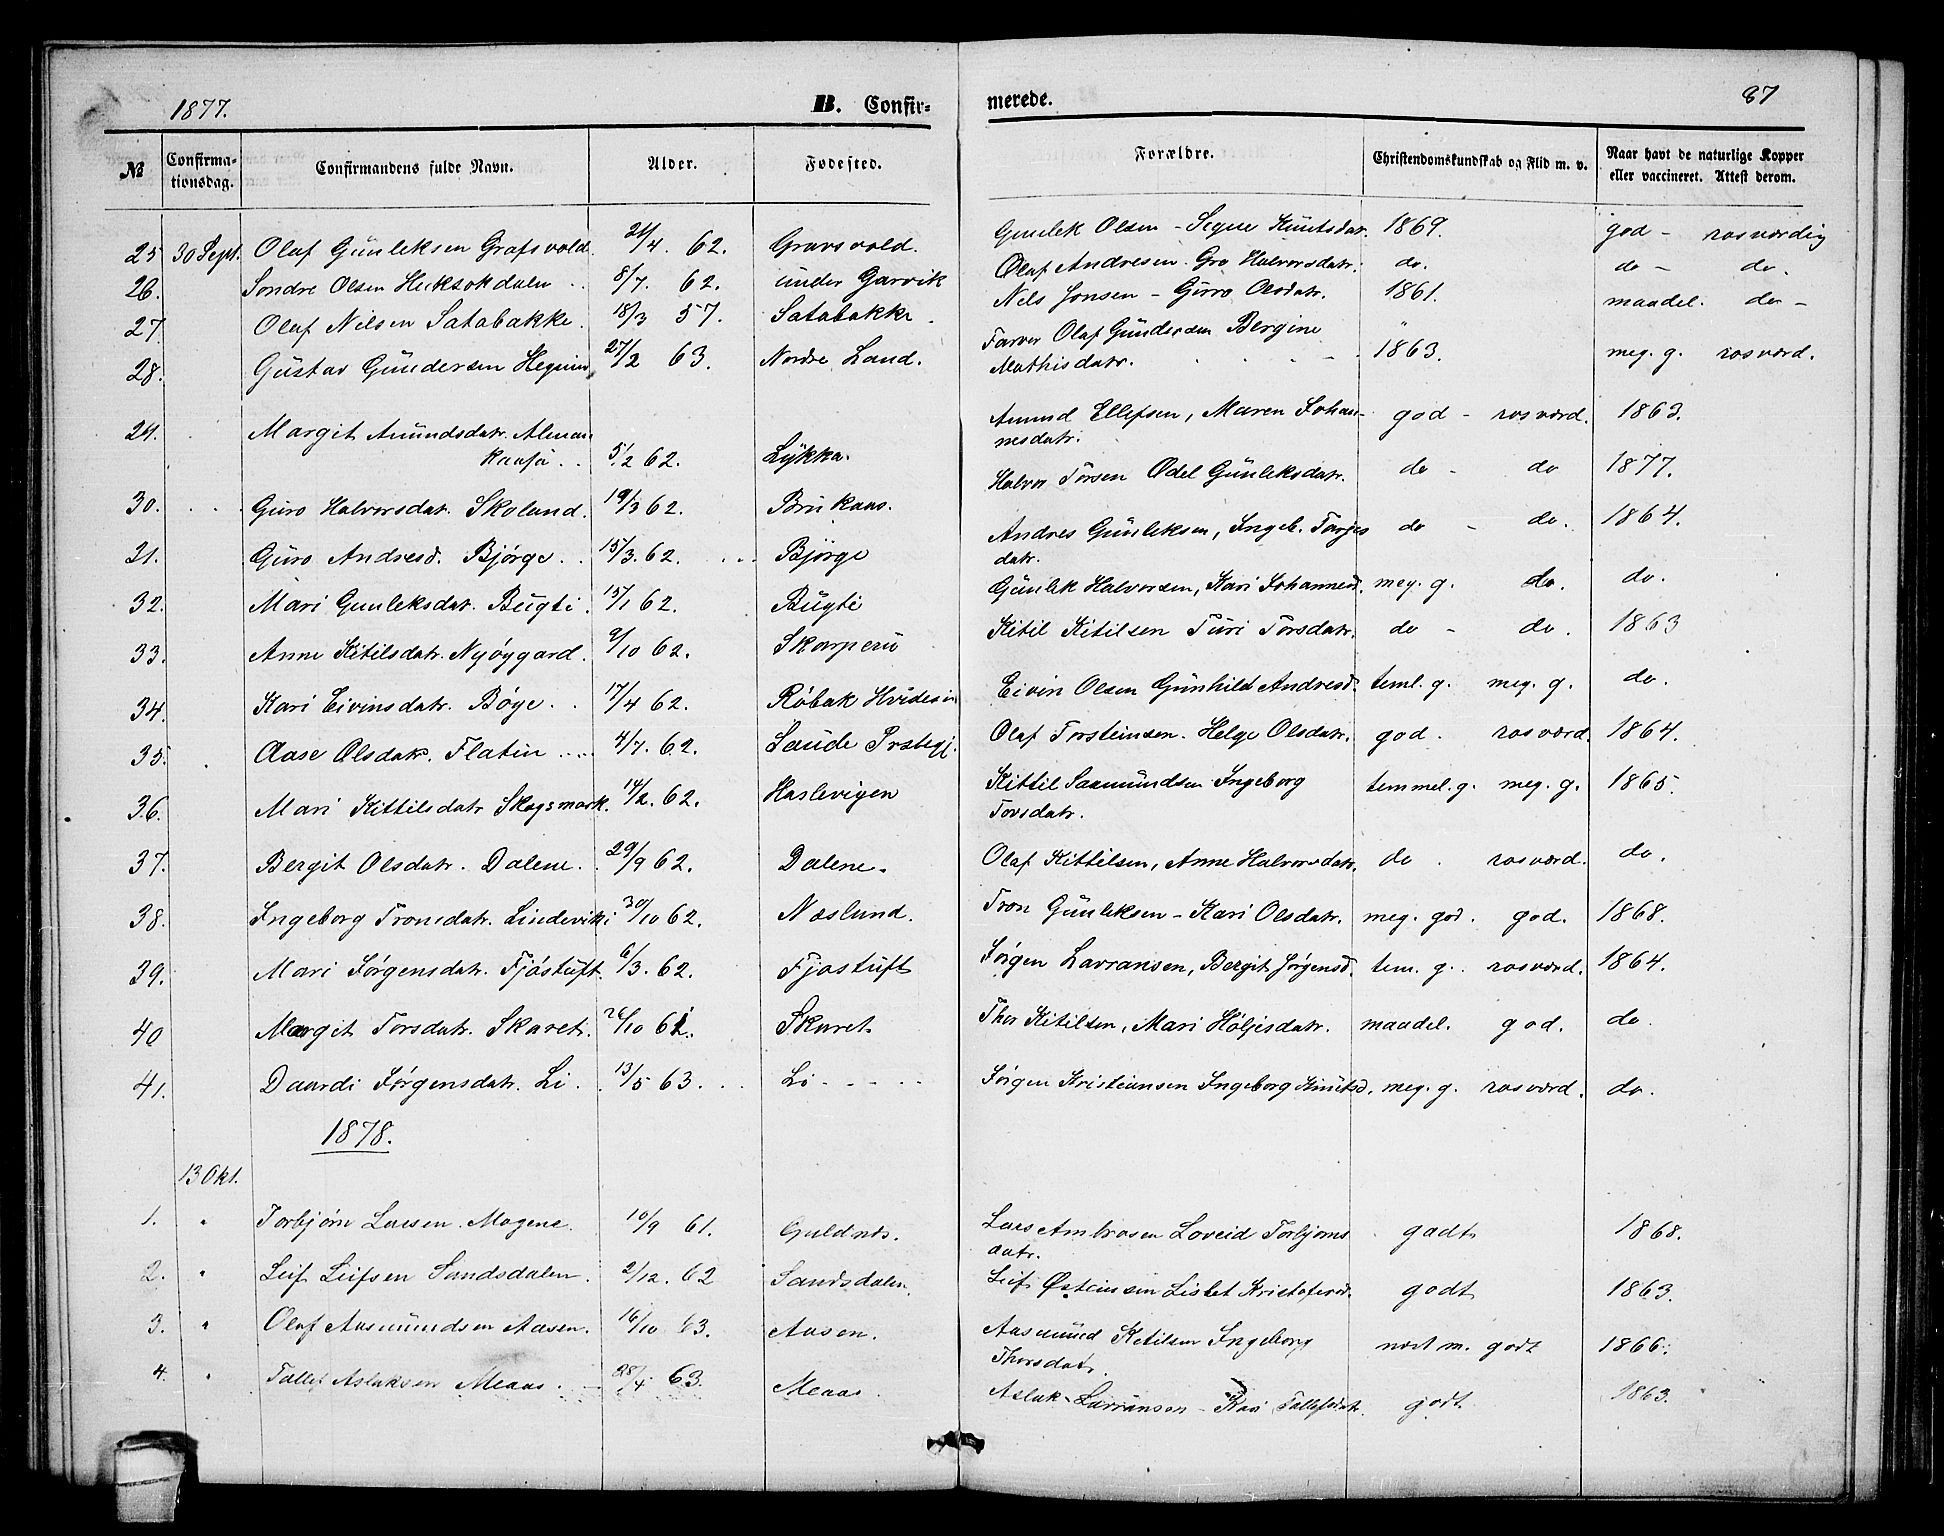 1877.
B. Confir-
merede.
87
№
Confirma-
tionsdag.
Confirmandens fulde Navn.
Alder.
Fødested.
Forældre.
Christendomskundskab og Flid m. v.
Naar havt de naturlige Kopper
eller vaccineret. Attest derom.
25 30 Sept. Olaf Gunleksen Grafsvold. 24/4. 62. Gravsvold. Gunlek Olsen - Signe Knutsdar. 1869. god - rosværdig
26. Sondre Olsen 8/7. 62. under Garvik Olaf Andresen. Gro Halvorsdatr. do. do - do.
27. Olaf Nilsen Satabakke. 18/3 57. Satabakke. Nils Jonsen - Guro Olsdatr. 1861. maadel. do -
28. Gustav Gundersen 27/2 63. Nordre Land. Farver Olaf Gundersen Bergine
Mathisdatr. 1863. meg. g. rosværd.
29. Margit Amundsdatr.
5/2 62. Lykkja. Amund Ellefsen, Maren Johan-
nesdatr. god - rosværd. 1863.
30. Guro Halvorsdatr. Skoland. 19/3 62. Brukaas. Halvor Torsen Odel Gunleksdatr. do - do 1877.
31. Guro Andresd. Bjørge. 15/3. 62. Bjørge Andres Gunleksen, Ingeb. Targes
datr. do - do. 1864.
32. Mari Gunleksdatr. Bugti. 15/1 62. Bugti Gunlek Halvorsen, Kari Johannesd. meg. g. do. do.
33. Anne Kitilsdatr. Nyøygard. 9/10 62. Skarperu Kitil Kitilsen Turi Torsdatr. do - do. 1863
34. Kari Eivinsdatr. Bøye. 17/4 62. Røbak Hvideseid Eivin Olsen Gunhild Andresd. teml. g. meg. g. do.
35. Aase Olsdatr. Flatin 4/7. 62. Saude Prstegj. Olaf Torsteinsen. Helge Olsdatr. god. rosværd. 1864.
36. Mari Kittilsdatr Skogsmark. 14/2. 62. Haslevigen Kittil Saamundsen Ingeborg
Torsdatr. temmel. g. meg. g. 1865.
37. Bergit Olsdatr. Dalene. 29/9 62. Dalene. Olaf Kittilsen, Anne Halvorsdatr. do. rosværd. do.
38. Ingeborg Tronsdatr. Lindeviki 30/10 62. Næslund. Tron Gunleksen - Kari Olsdatr. meg. god. god. 1868.
39. Mari Jørgensdatr. Fjøstuft. 6/3. 62. Fjøstuft Jørgen Lavransen, Bergit Jørgensd. tem. g. rosværd. 1864.
40 Margit Torsdatr. Skaret. 26/10 61. Skaret Thor Kitilsen, Mari Høljesdatr. maadel. god. do
41. Daardi Jørgensdatr. Li. 13/5 63. Li Jørgen Kristiansen Ingeborg Knutsd. meg. g. rosværd. do.
1878.
13 Okt.
1. " Torbjørn Larsen. Mogene. 10/9 61. Guldnes. Lars Ambrosen Loveid Torbjørns
datr. godt 1868.
2. " Leif Leifsen Sandsdalen. 2/12. 62 Sandsdalen Leif Østensen Lisbet Kristofersd. godt 1863.
3. " Olaf Aasmundsen Aasen. 16/10 63. Aasen. Aasmund Ketilsen Ingeborg
Thorsdatr. nost m. godt 1866.
4. " Tallef Aslaksen Meaas. 28/4 63. Meaas. Aslak Lavransen - Kari Tallefsdatr. godt 1863.